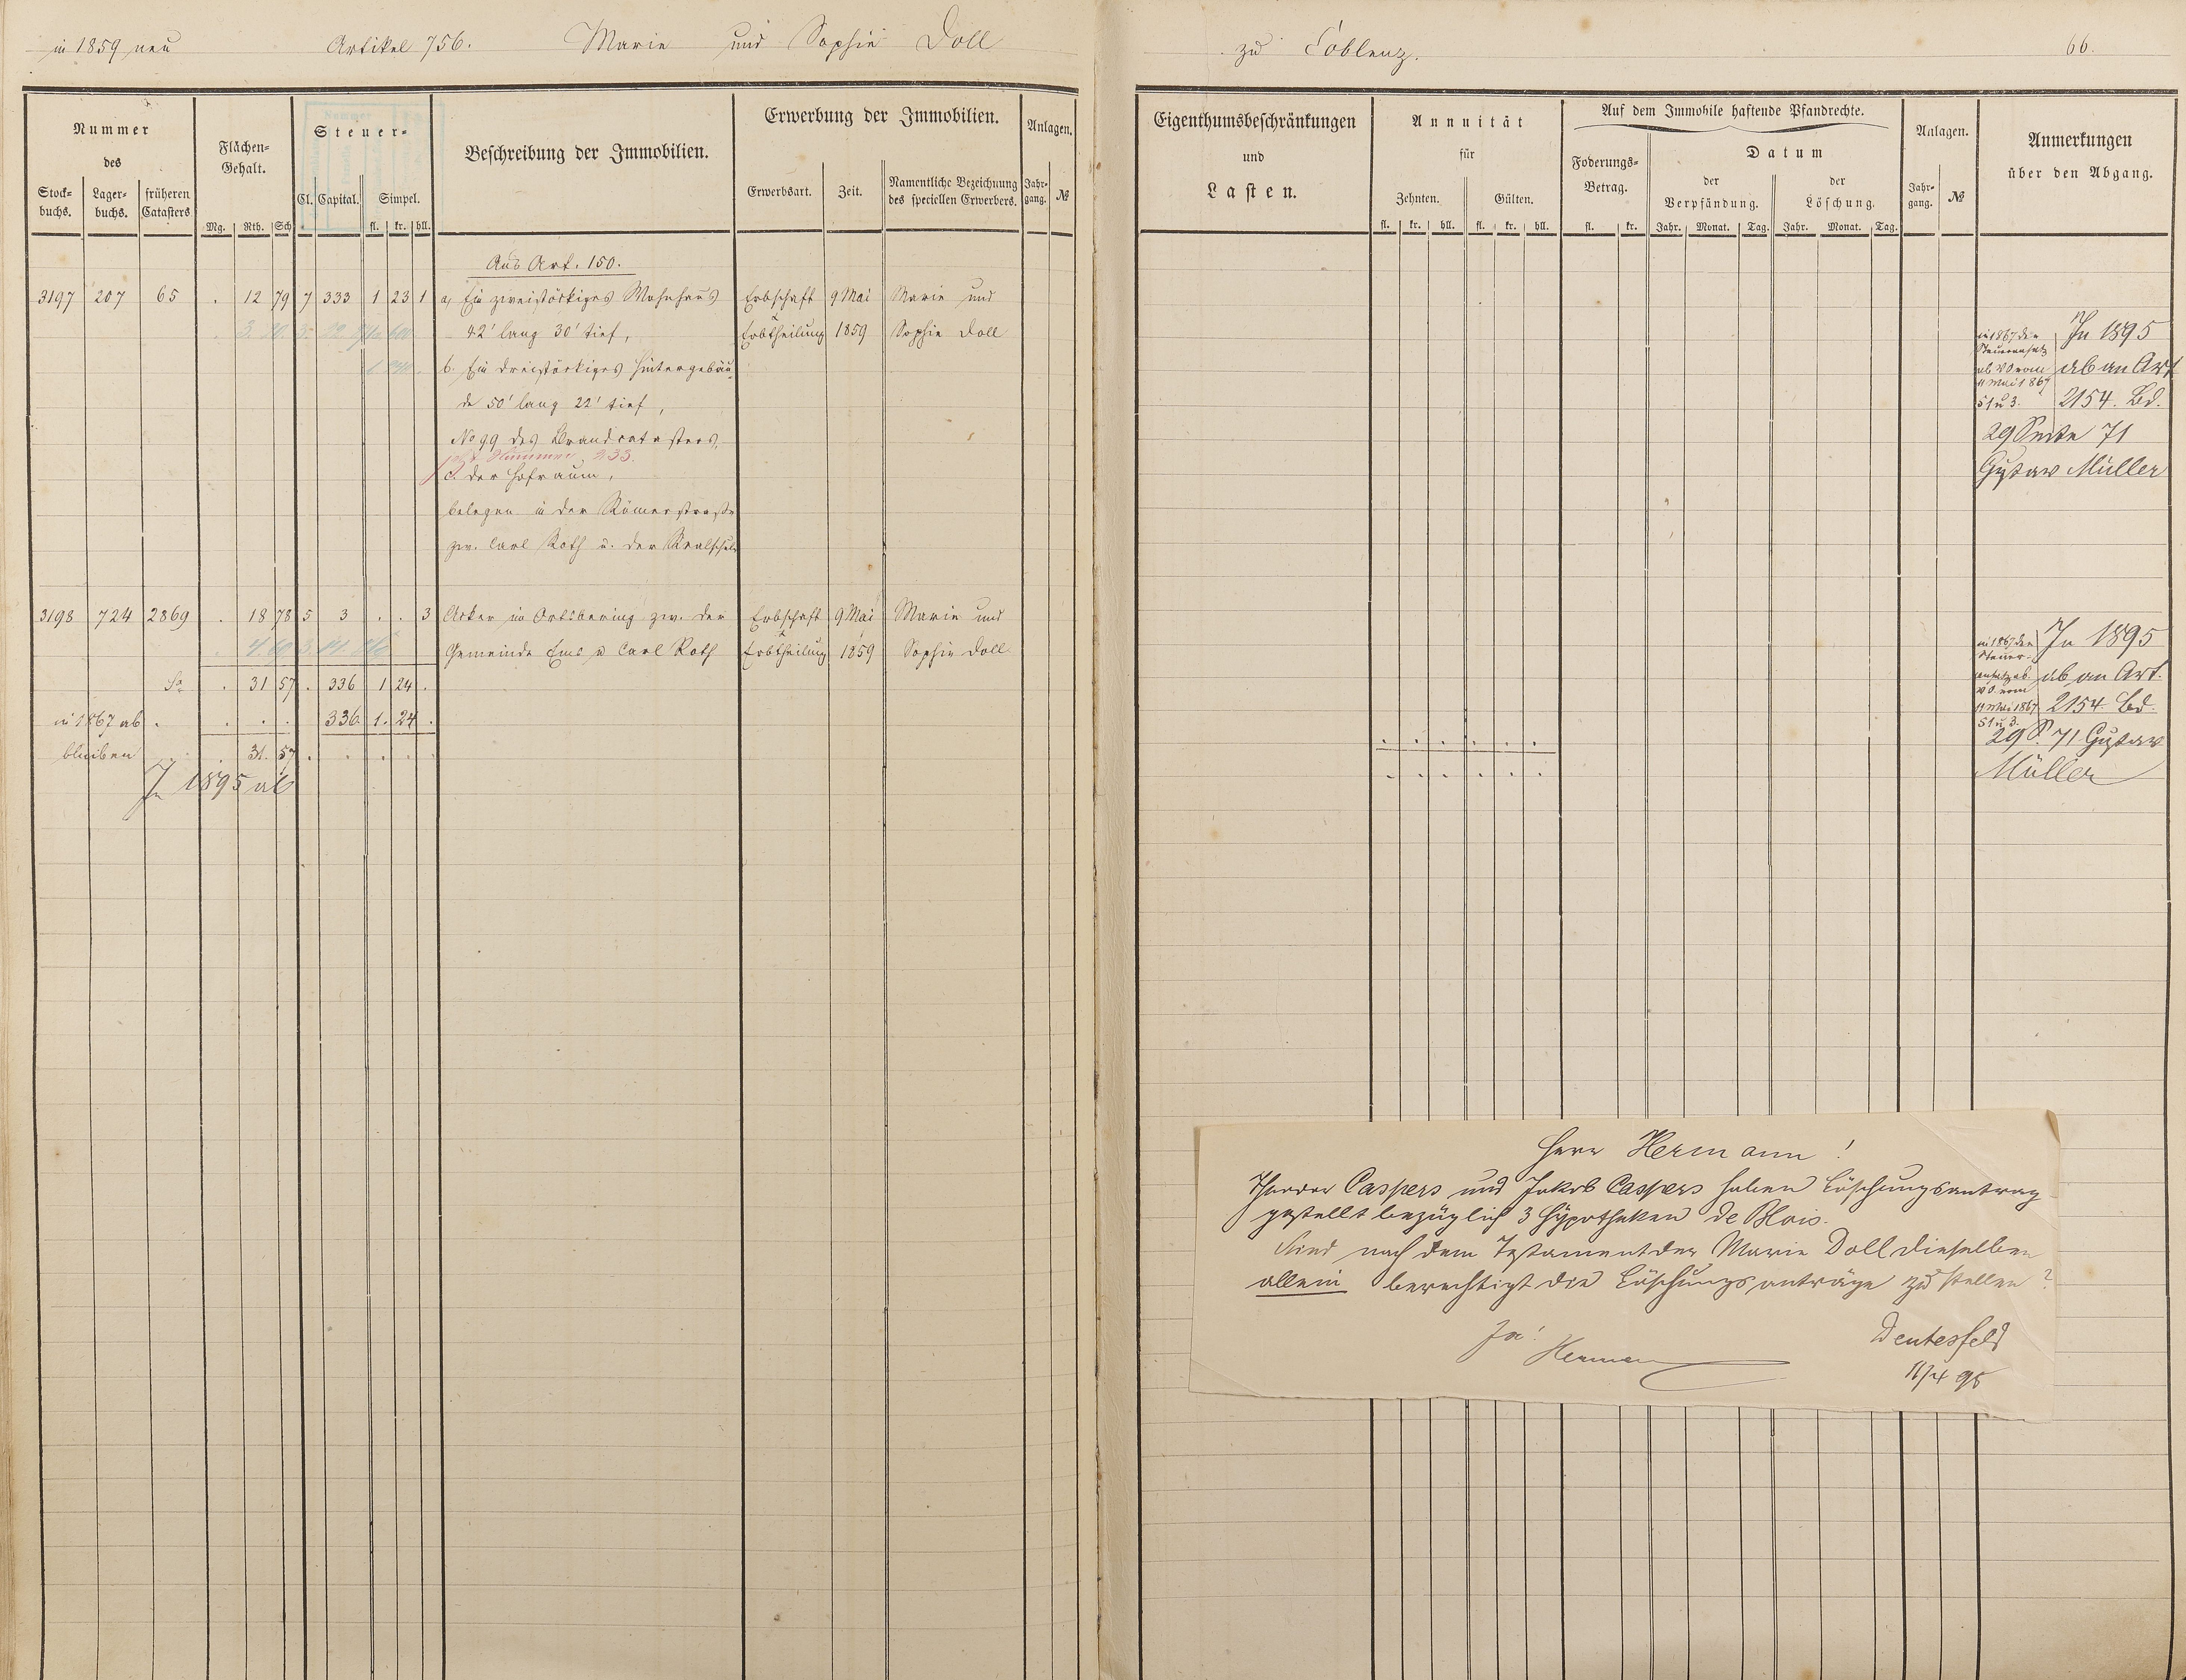 in 1859 neu Artikel 756. Marie und Sophie Doll
Nummer
des
Stock-
buchs.
Lager-
buchs.
früheren
Catasters
Flächen-
Gehalt.
Mg. Rth. Sch
Steuer-
Cl. Capital. Simpel.
fl. kr. hll.
Beschreibung der Immobilien.
Erwerbung der Immobilien.
Erwerbsart. Zeit.
Namentliche Bezeichnung
des speciellen Erwerbers.
Anlagen.
Jahr-
gang. №
Aus Art. 150.
3197 207 65 . 12 79 7 333 1 23 1 a, Ein zweistöckiges Wohnhaus Erbschaft 9 Mai Marie und
42' lang 30' tief, Erbtheilung 1859 Sophie Doll
b. Ein dreistöckiges Hintergebäu-
de 50' lang 22' tief,
No 99 des Brandcatasters,
Nummer 233.
c. der Hofraum,
belegen in der Römerstraße
zw. Carl Roth u. der Realschule
3198 724 2869 . 18 78 5 3 . . 3 Acker im Ortsbering zw. der Erbschaft 9 Mai Marie und
Gemeinde Ems u Carl Roth Erbtheilung 1859 Sophie Doll
Sa . 31 57 . 336 1 24 .
in 1867 ab . . . . 336 1. 24 .
bleiben . 31. 57 . . . . .
In 1895 ab
zu Coblenz. 66.
Eigenthumsbeschränkungen
und
Lasten.
Annuität
für
Zehnten. Gülten.
fl. kr. hll. fl. kr. hll.
Auf dem Immobile haftende Pfandrechte.
Foderungs-
Betrag.
fl. kr.
Datum
der
Verpfändung.
der
Löschung.
Jahr. Monat. Tag. Jahr. Monat. Tag.
Anlagen.
Jahr-
gang. №
Anmerkungen
über den Abgang.
in 1867 den
Steueransatz
ab VO vom
11 Mai 1867
§1 u 3.
In 1895
ab an Art
2154. Bd.
29 Seite 71
Gustav Müller
in 1867 den
Steuer-
ansatz ab
VO vom
11 Mai 1867
§1 u 3.
In 1895
ab an Art.
2154. Bd.
29 S. 71 Gustav
Müller
Herr Hermann!
Theodor Caspers und Jakob Caspers haben Löschungsantrag
gestellt bezüglich 3 Hypotheken de Blois.
Sind nach dem Testament der Marie Doll dieselben
allein berechtigt die Löschungsanträge zu stellen?
Ja!
Hermann
Deutesfeld
11/4 98